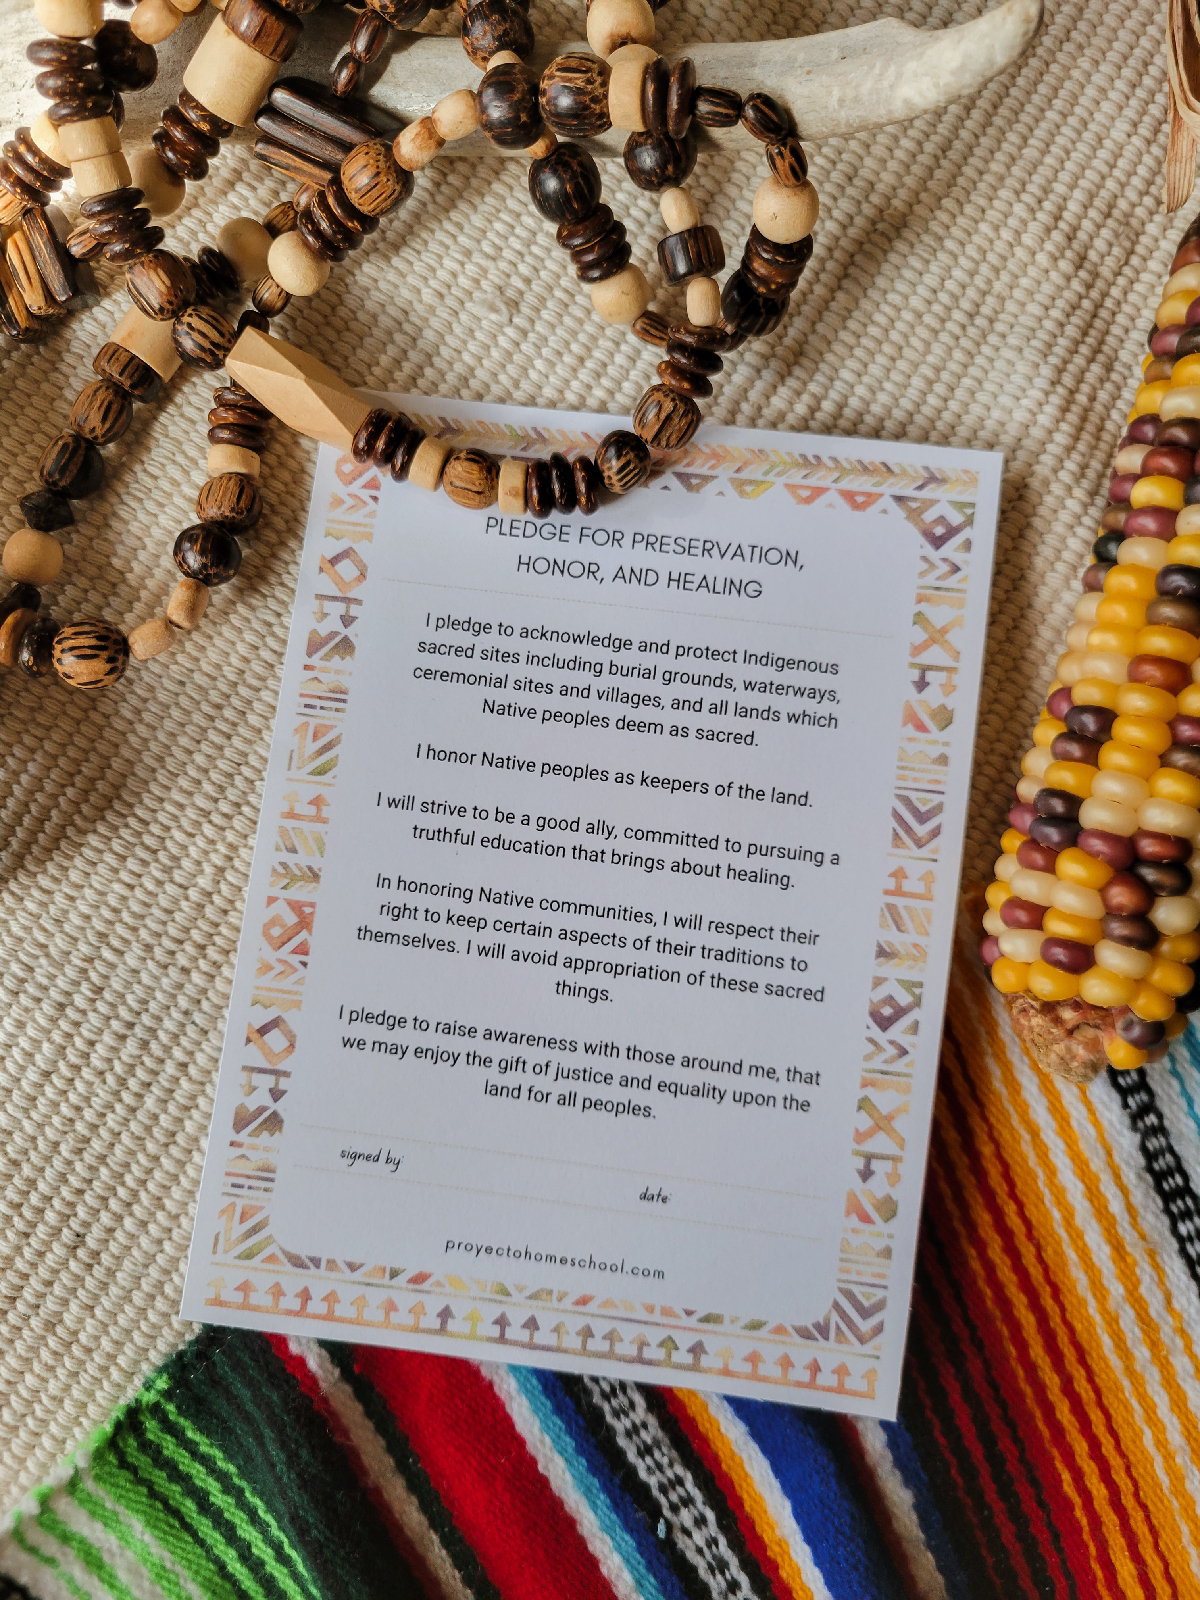 PLEDGE FOR PRESERVATION,
HONOR, AND HEALING
I pledge to acknowledge and protect Indigenous
sacred sites including burial grounds, waterways,
ceremonial sites and villages, and all lands which
Native peoples deem as sacred.
I honor Native peoples as keepers of the land.
I will strive to be a good ally, committed to pursuing a
truthful education that brings about healing.
In honoring Native communities, I will respect their
right to keep certain aspects of their traditions to
themselves. I will avoid appropriation of these sacred
things.
I pledge to raise awareness with those around me, that
we may enjoy the gift of justice and equality upon the
land for all peoples.
signed by:
date:
proyectohomeschool.com